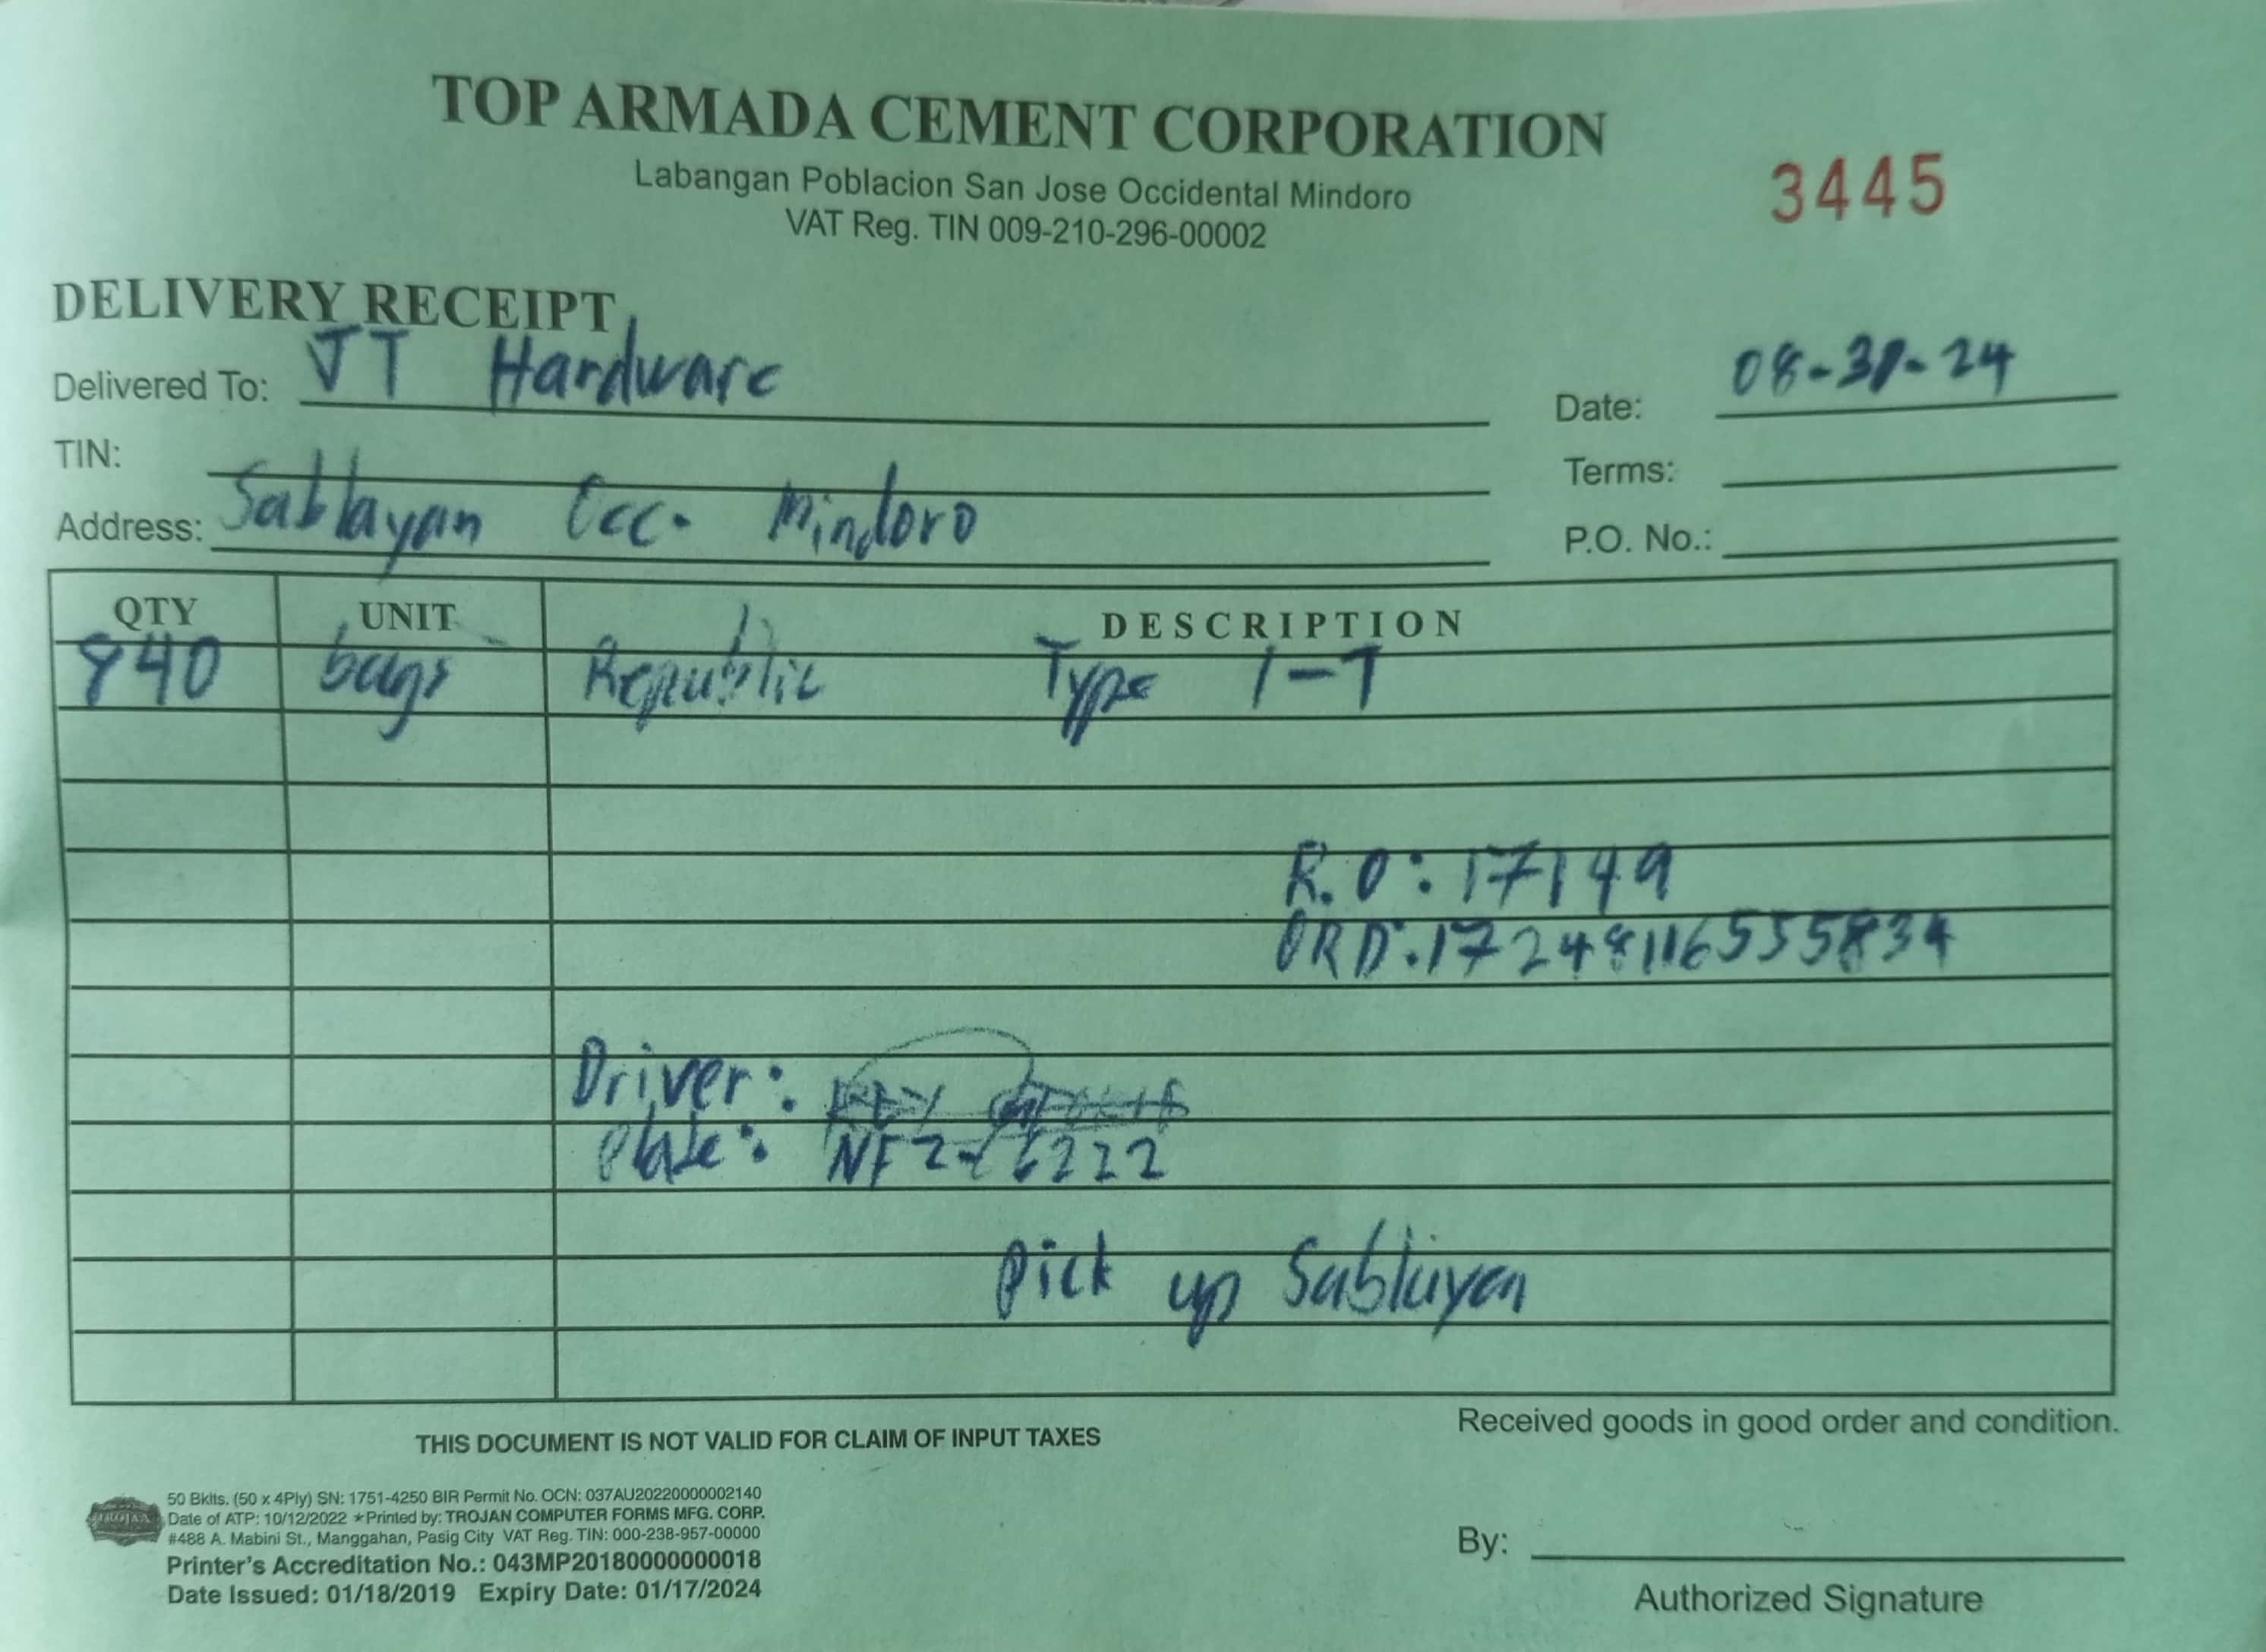 TOP ARMADA CEMENT CORPORATION
Labangan Poblacion San Jose Occidental Mindoro
VAT Reg. TIN 009-210-296-00002
3445
DELIVERY RECEIPT
Delivered To: JT Hardware
Date: 08-31-24
TIN:
Terms:
Address: Sablayan Occ. Mindoro
P.O. No.:
QTY UNIT DESCRIPTION
840 bags Republic Type 1-T
R.O: 17149
ORD: 17248116555834
Driver:
Plate: NFZ-6222
Pick up Sablayan
THIS DOCUMENT IS NOT VALID FOR CLAIM OF INPUT TAXES
Received goods in good order and condition.
TROJAN
50 Bklts. (50 x 4Ply) SN: 1751-4250 BIR Permit No. OCN: 037AU20220000002140
Date of ATP: 10/12/2022 ★Printed by: TROJAN COMPUTER FORMS MFG. CORP.
#488 A. Mabini St., Manggahan, Pasig City VAT Reg. TIN: 000-238-957-00000
Printer's Accreditation No.: 043MP20180000000018
Date Issued: 01/18/2019 Expiry Date: 01/17/2024
By:
Authorized Signature